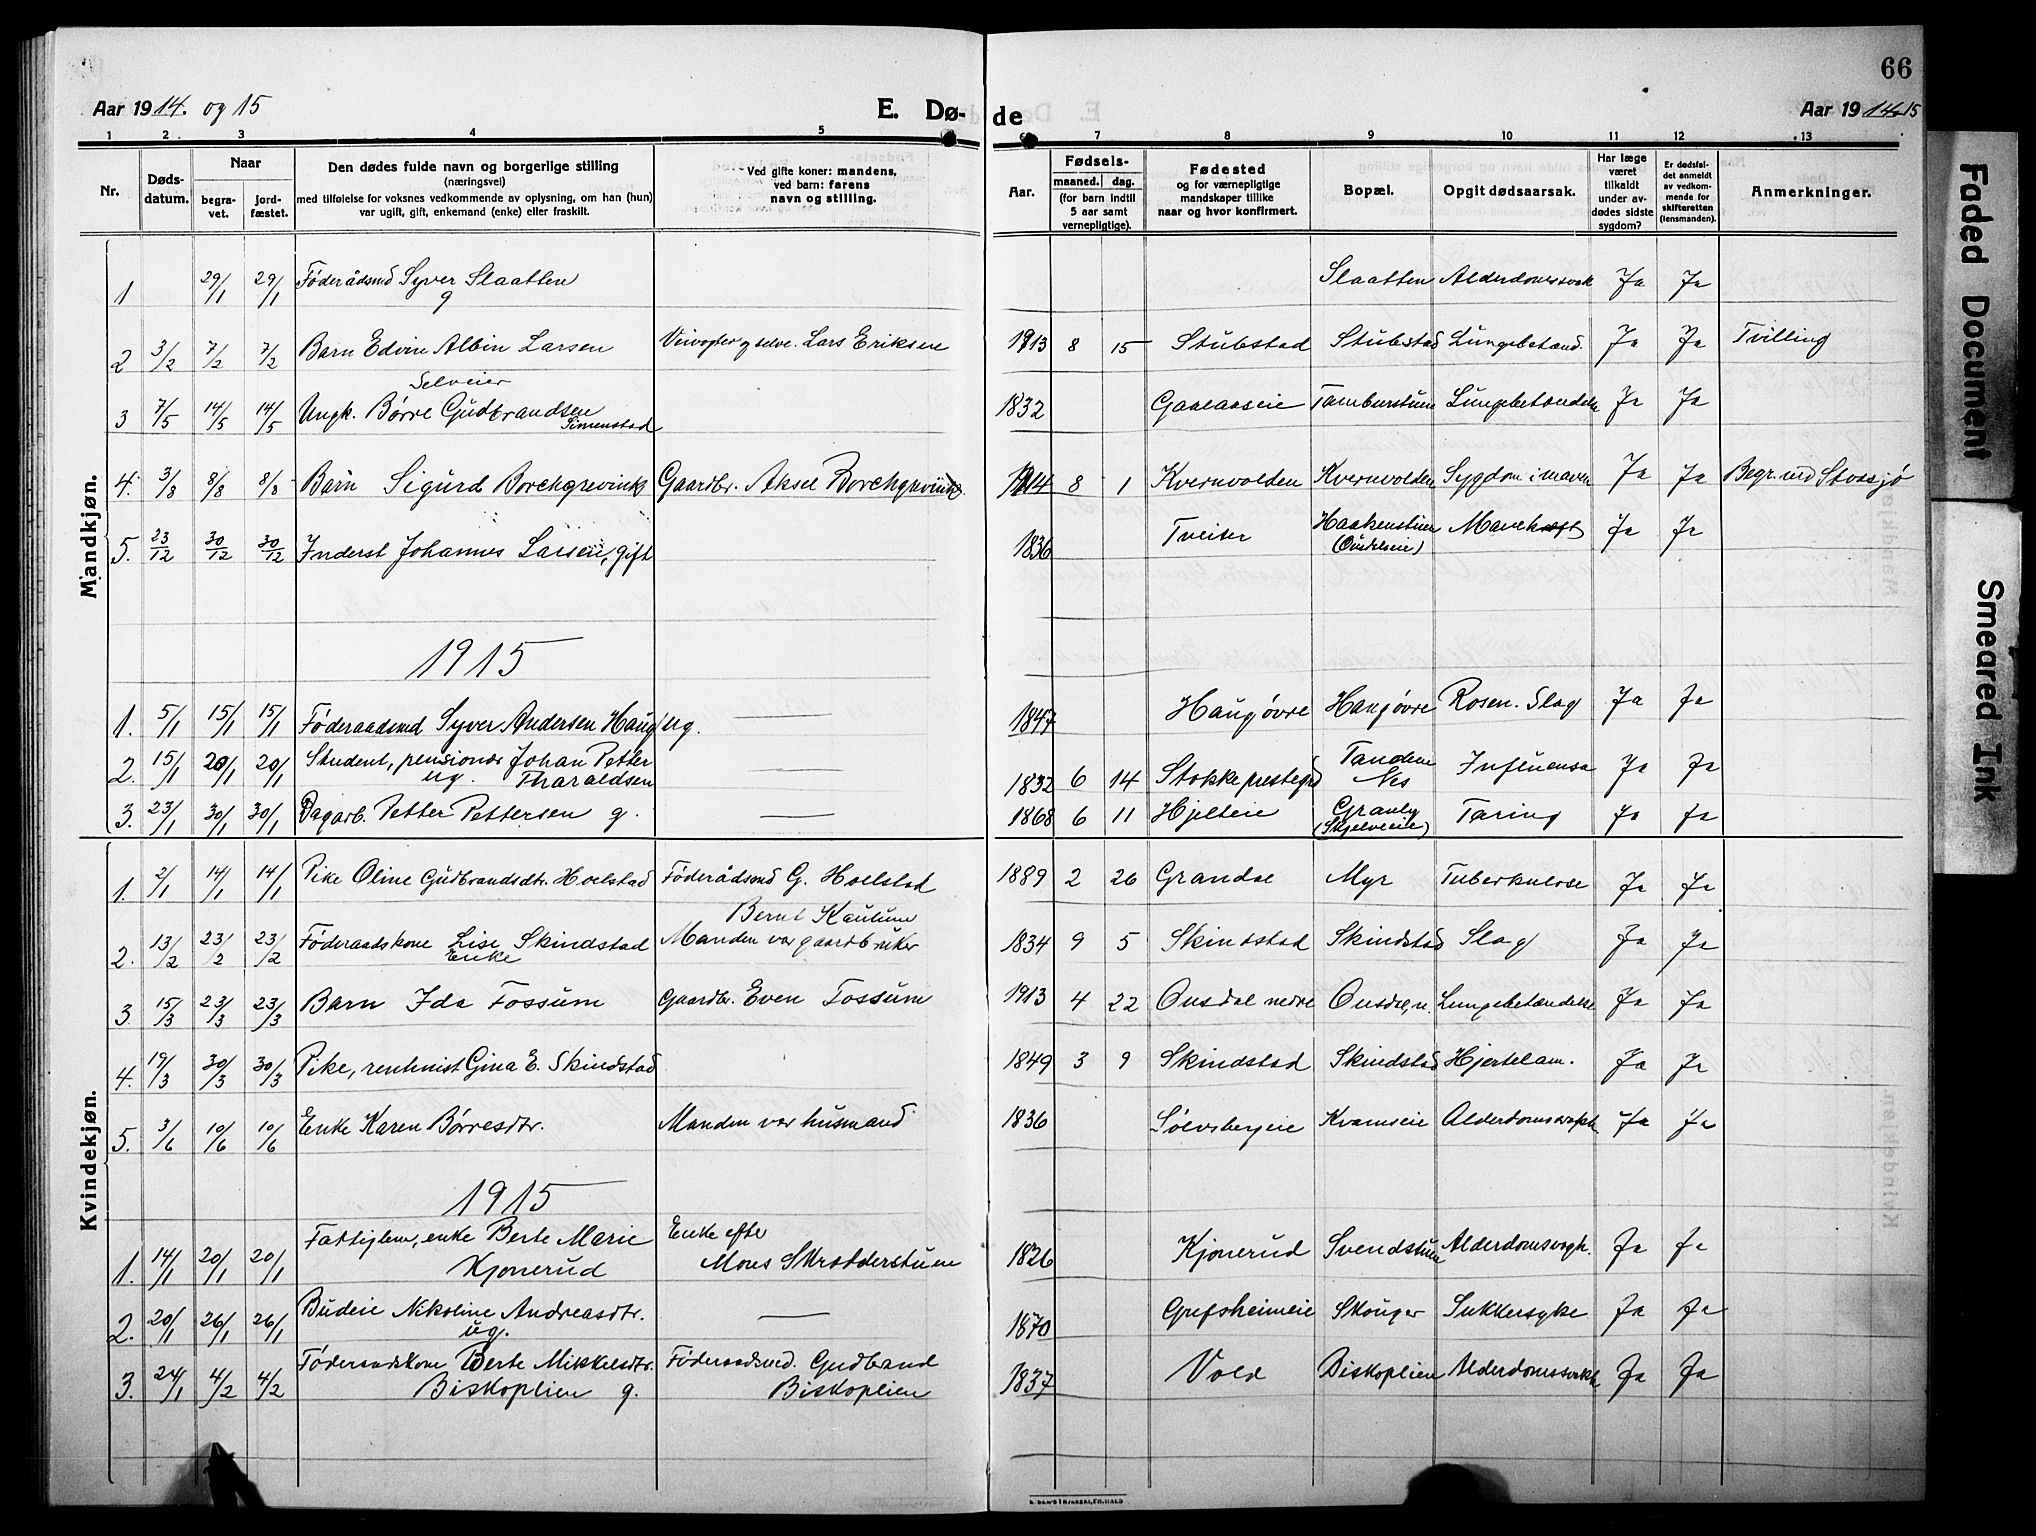 66
Aar 1914. og 15 E. Dø- de Aar 1914. 15
1 2 3 4 5 6 7 8 9 10 11 12 13
Nr. Døds-datum. Naar begra-vet. jord-fæstet. Den dødes fulde navn og borgerlige stilling (næringsvei) med tilføielse for voksnes vedkommende av oplysning, om han (hun) var ugift, gift, enkemand (enke) eller fraskilt. Ved gifte koner: mandens, ved barn: farens navn og stilling. Aar. Fødsels- maaned. dag. (for barn indtil 5 aar samt vernepligtige). Fødested og for værnepligtige mandskaper tillike naar og hvor konfirmert. Bopæl. Opgit dødsaarsak. Har læge været tilkaldt under av-dødes sidste sygdom? Er dødsfal-det anmeldt av vedkom-mende for skifteretten (lensmanden). Anmerkninger.
Mandkjøn.
1 29/1 29/1 Føderådsmd Syver Slaatten g Slaatten Ja Ja
2 3/2 7/2 7/2 Barn Edvin Albin Larsen Lars Eriksen 1913 8 15 Stubstad Stubstad Lungebetænd. Ja Ja Tvilling
Selveier
3 7/5 14/5 14/5 Ungk. Børre Gudbrandsen Simenstad 1832 Gaalaaseie Tamburstuen Lungebetændelse Ja Ja
4. 3/8 8/8 8/8 Barn Sigurd Borchgrevink Gaardbr. Aksel Borchgrevink 1914 8 1 Kvernvolden Kvernvolden Sygdom i maven Ja Ja Begr. ved Stavsjø
5. 23/12 30/12 30/12 Inderst Johannes Larsen, gift 1836 Tveiter Haakenstuen Mavekræft Ja Ja
1915
1. 5/1 15/1 15/1 Føderaadsmd Syver Andersen Haug ug. — 1847 Haugøvre Haugøvre Rosen. Slag Ja Ja
2. 15/1 20/1 20/1 Student, pensionær Johan Petter Tharaldsen ug. — 1832 6 14 Stokke prestegrd Tanden Nes Influensa Ja Ja
3. 23/1 30/1 30/1 Dagarb. Petter Pettersen g. — 1868 6 11 Hjelteie Granly (Skjelveeie) Taring Ja Ja
Kvindekjøn.
1. 2/1 14/1 14/1 Pike Oline Gudbrandsdtr. Hoelstad Føderådsmd G. Hoelstad 1889 2 26 Grandal Myr Tuberkulose Ja Ja
Bernt Kaulum
2. 13/2 23/2 23/2 Føderaadskone Lise Skindstad Enke Manden var gaardbruker 1834 9 5 Skindstad Skindstad Slag Ja Ja
3. 15/3 23/3 23/3 Barn Ida Fossum Gaardbr. Even Fossum 1913 4 22 Onsdal nedre Onsdal, n. Lungebetændelse Ja Ja
4. 19/3 30/3 30/3 Pike, rentenist Gina E. Skindstad 1849 3 9 Skindstad Skindstad Hjertelam. Ja Ja
5. 3/6 10/6 10/6 Enke Karen Børresdtr. Manden var husmand 1836 Sølvsbergeie Kvameie Ja Ja
1915
1. 14/1 20/1 20/1 Fattiglem, enke Berte Marie Kjonerud Enke efter Mons Skrædderstuen 1826 Kjonerud Svendstuen Ja Ja
2. 20/1 26/1 26/1 Budeie Nikoline Andreasdtr. ug. — 1870 Grefsheimeie Skouger Sukkersyke Ja Ja
3. 24/1 4/2 4/2 Føderaadskone Berte Mikkelsdtr. Biskoplien g. Føderaadsmd. Gudbrand Biskoplien 1837 Vold Biskoplien Ja Ja
Faded Document
Smeared Ink